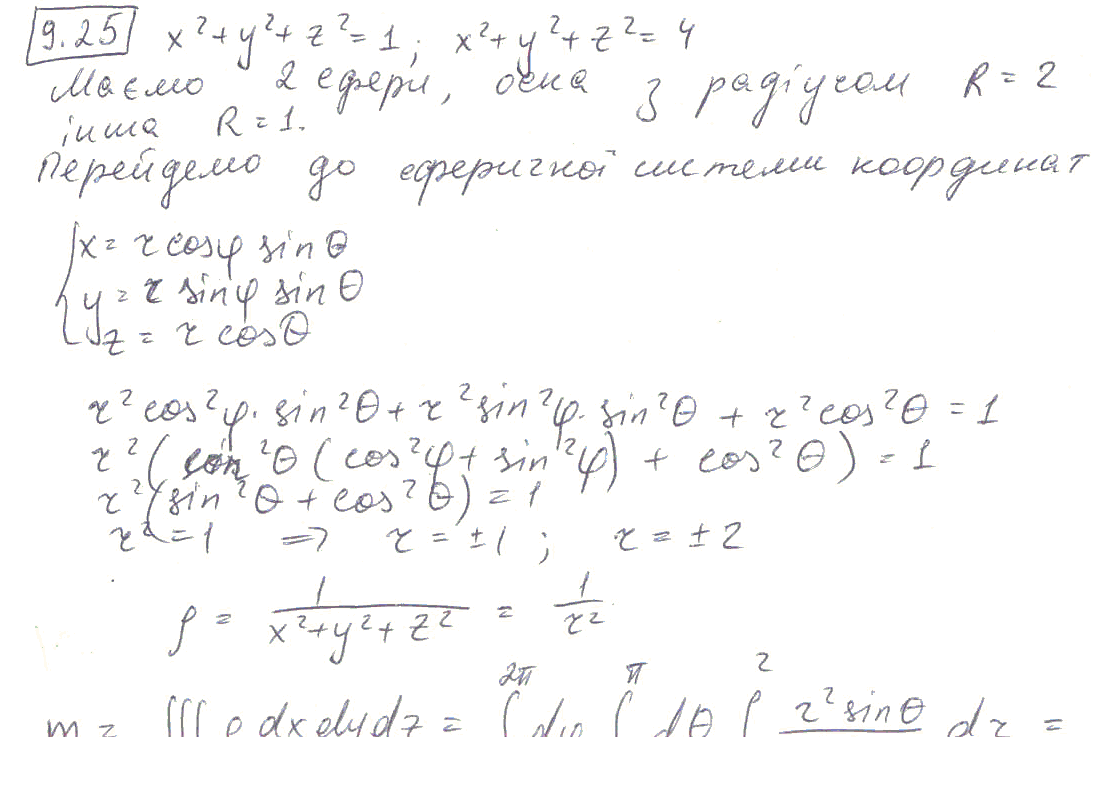 9.25 x²+y²+z²=1; x²+y²+z²=4
Маємо 2 сфери, одна з радіусом R=2
інша R=1.
Перейдемо до сферичної системи координат
x = r cosφ sinθ
y = r sinφ sinθ
z = r cosθ
r²cos²φ·sin²θ + r²sin²φ·sin²θ + r²cos²θ = 1
r²(sin²θ(cos²φ+sin²φ) + cos²θ) = 1
r²(sin²θ+cos²θ) = 1
r²=1 ⇒ r=±1; r=±2
ρ = 1/(x²+y²+z²) = 1/r²
m = ∭ρ dxdydz = ∫2π dφ ∫π dθ ∫2 r² sinθ dr =